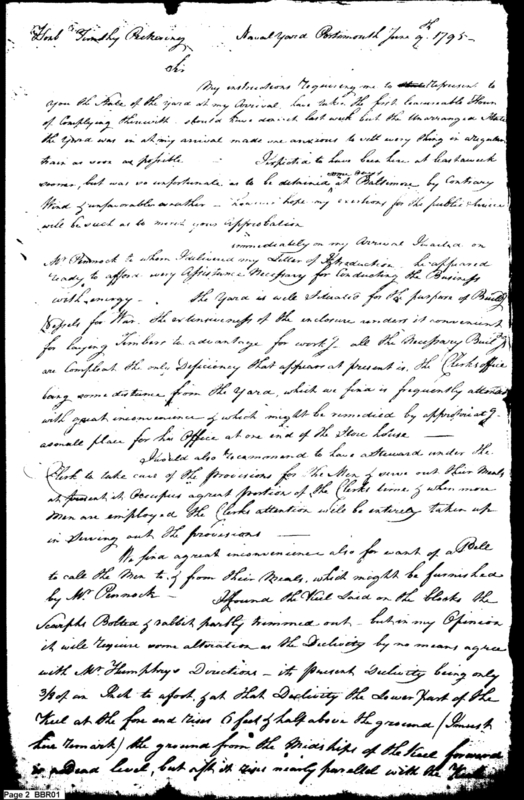 Honble Timothy Pickering Naval Yard Portsmouth June 9th 1795 -
Sir
My instructions requiring me to represent to
you the State of the Yard at my Arrival, have taken the first Convenient Hour
of Complying therewith - should have done it last week but the Unarranged State
the Yard was in at my arrival made me anxious to sett every thing in regular
train as soon as possible I expected to have been here at least a week
sooner, but was so unfortunate as to be detained some days at Baltimore by Contrary
Wind & unfavorable weather - hope my exertions for the public Service
will be such as to merit your approbation
immediately on my Arrival I waited on
Mr Pennock to whom I delivered my Letter of Introduction he appeared
ready to afford every Assistance Necessary for Conducting the Business
with energy - The Yard is well Situated for the purpose of Building
Vessels for War. The extensiveness of the enclosure renders it convenient
for laying Timbers to advantage for workg all the Necessary Buildgs
are Compleat the only Deficiency that appears at present is, the Clerks office
being some distance from the Yard, which we find is frequently attended
with great inconvenience & which might be remedied by appropriatg
a small place for his Office at one end of the Store house -
I would also recommend to have a Steward under the
Clerk to take care of the Provisions for the Men & serve out their Meals
at present it Occupies a great portion of the Clerks time & when more
Men are employed the Clerks attention will be entirely taken up
in serving out the provisions -
We find a great inconvenience also for want of a Bell
to call the Men to & from their Meals, which might be furnished
by Mr Pennock - I found the Keel Laid on the blocks the
Scarphs Bolted & rabbit partly trimmed out - but in my Opinion
it will require some alteration as the Declivity by no means agree
with Mr Humphrys Directions - its present Declivity being only
3/8 of an Inch to a foot, & at that Declivity the Lower part of the
Keel at the fore end rises 6 feet & half above the ground (I must
here remark) the ground from the Midships of the Keel forward
is a Dead level, but aft, it rises nearly parallel with the Keel
Page 2 BBR01